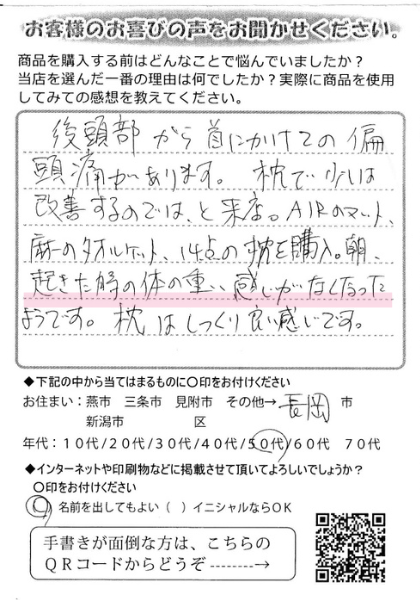 お客様のお喜びの声をお聞かせください。
商品を購入する前はどんなことで悩んでいましたか？
当店を選んだ一番の理由は何でしたか？実際に商品を使用
してみての感想を教えてください。
後頭部から首にかけての偏
頭痛があります。枕で少しは
改善するのでは、と来店。AIRのマット、
麻のタオルケット、14点の枕を購入。朝、
起きた時の体の重い感じがなくなった
ようです。枕はしっくり良い感じです。
◆下記の中から当てはまるものに〇印をお付けください
お住まい：燕市 三条市 見附市 その他→長岡 市
新潟市 区
年代：10代/20代/30代/40代/50代/60代 70代
◆インターネットや印刷物などに掲載させて頂いてよろしいでしょうか？
〇印をお付けください
名前を出してもよい（ ）イニシャルならOK
手書きが面倒な方は、こちらの
QRコードからどうぞ--------→